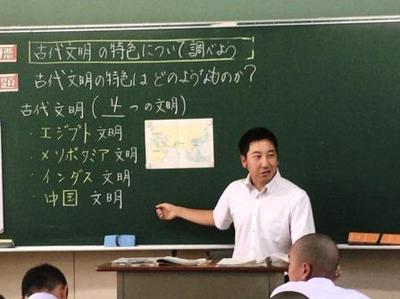 古代文明の特色について調べよう
題 古代文明の特色はどのようなものか?
古代文明(4つの文明)
・エジプト文明
・メソポタミア文明
・インダス文明
・中国 文明